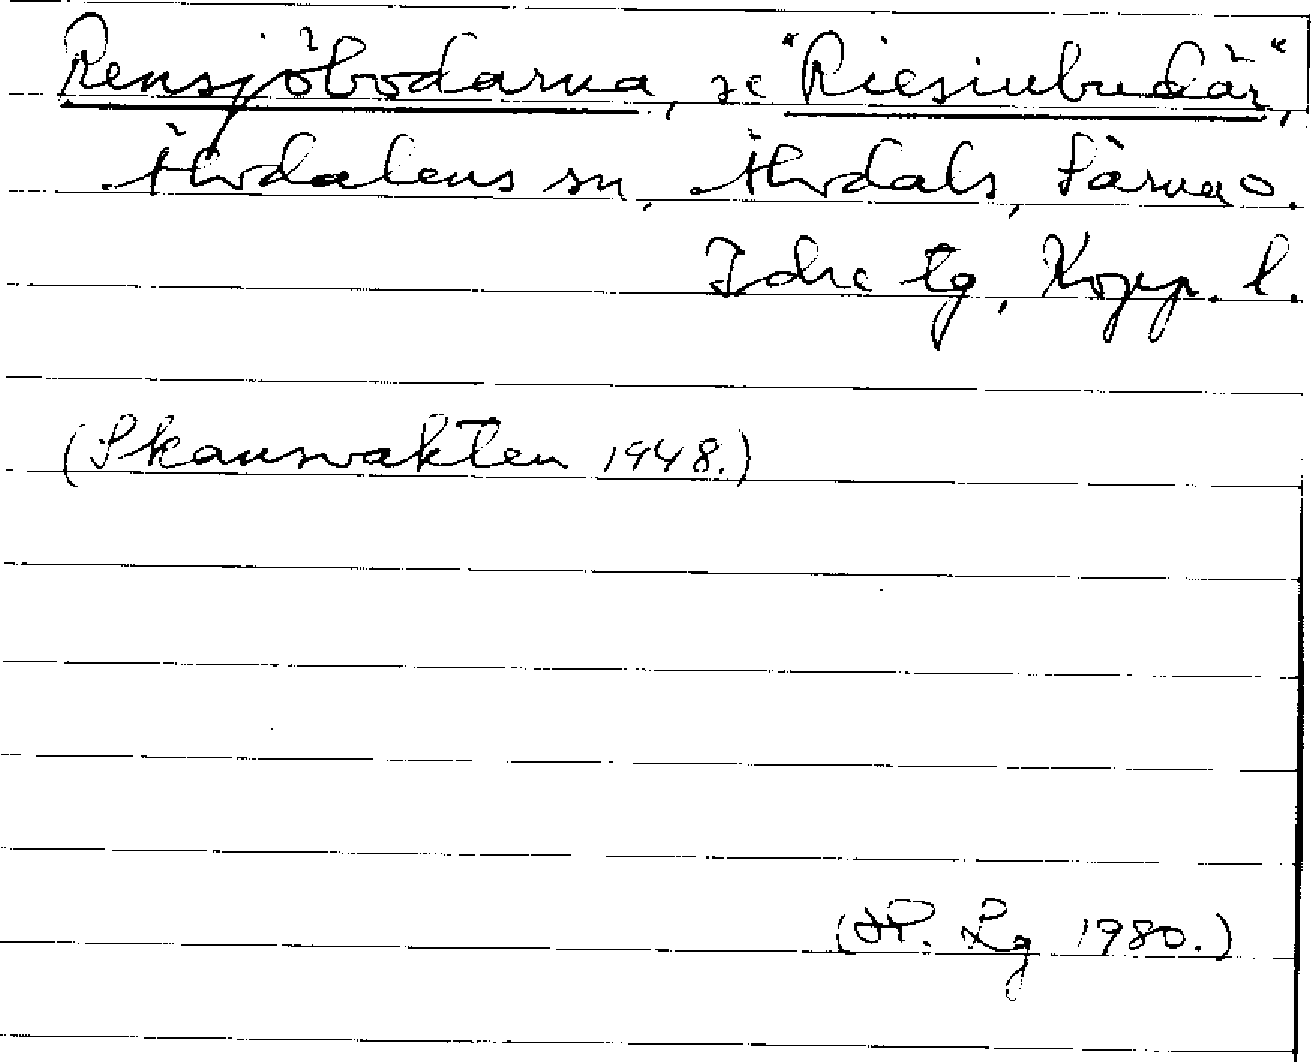 Rensjöbodarna, se "Riesiubudär",
Älvdalens sn, Älvdals, Särna o.
Idre tg, Kopp. l.
(Skansvakten 1948.)
Lg 1980.)